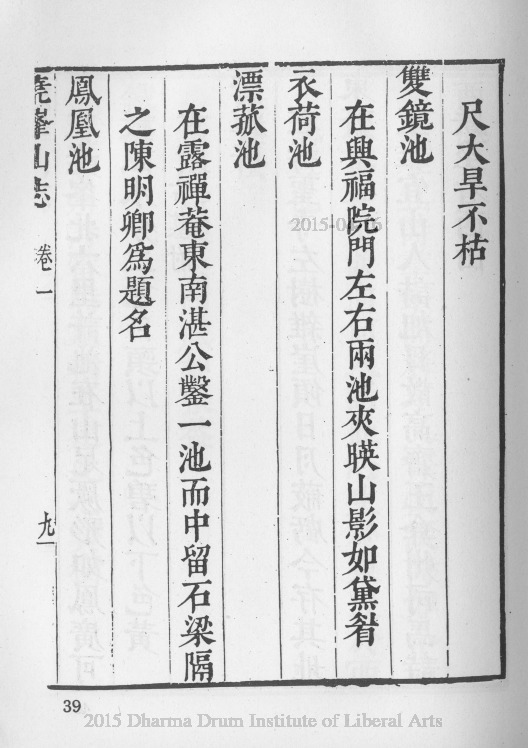 尺大旱不枯
雙鏡池
在興福院門左右兩池夾暎山影如黛眉
衣荷池
漂菰池
在露禪菴東南湛公鑿一池而中留石梁隔
之陳明卿爲題名
鳳凰池
堯峯山志 卷一 九
39
2015-04-16
2015 Dharma Drum Institute of Liberal Arts